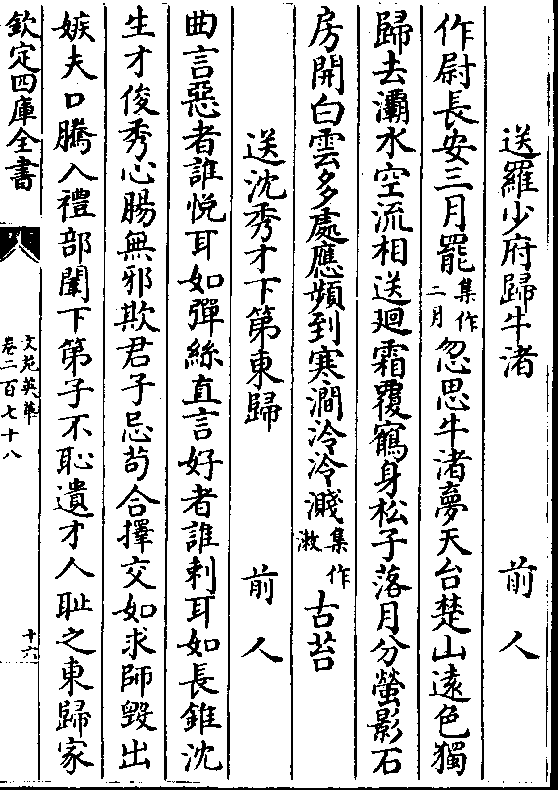 送羅少府歸牛渚　前人
作尉長安三月罷集作二月忽思牛渚夢天台楚山遠色獨
歸去灞水空流相送廻霜覆鶴身松子落月分螢影石
房開白雲多處應頻到寒澗泠泠濺集作漱古苔
送沈秀才下第東歸　前人
曲言惡者誰悦耳如彈絲直言好者誰刺耳如長錐沈
生才俊秀心腸無邪欺君子忌苟合擇交如求師毀出
嫉夫口騰入禮部闈下第子不恥遺才人耻之東歸家
欽定四庫全書
文苑英華
卷二百七十八
十六